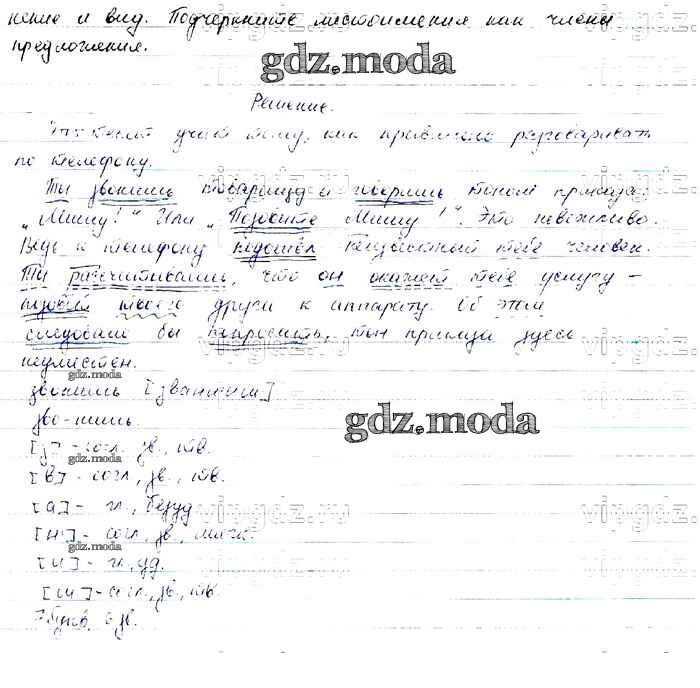 нение и вид. Подчеркните местоимения как члены
предложения.
gdz.moda
Решение.
учит тому, как правильно разговаривать
по телефону.
Ты звонишь товарищу и говоришь тоном приказа:
„Мишу!“ Или „Позовите Мишу!“. Это невежливо.
Ведь к телефону подошёл неизвестный тебе человек.
Ты рассчитываешь, что он окажет тебе услугу –
позовёт твоего друга к аппарату. Об этом
следовало бы попросить, тон приказа здесь
неуместен.
gdz.moda
звонишь [званиш]
зво-нишь.
gdz.moda
[з] - согл., зв., тв.
gdz.moda
[в] - согл, зв., тв.
[а] - гл., безуд
[н'] - согл, зв, мягк.
gdz.moda
[и] - гл, уд.
[ш] - согл., зв, тв.
7 букв, 6 зв.